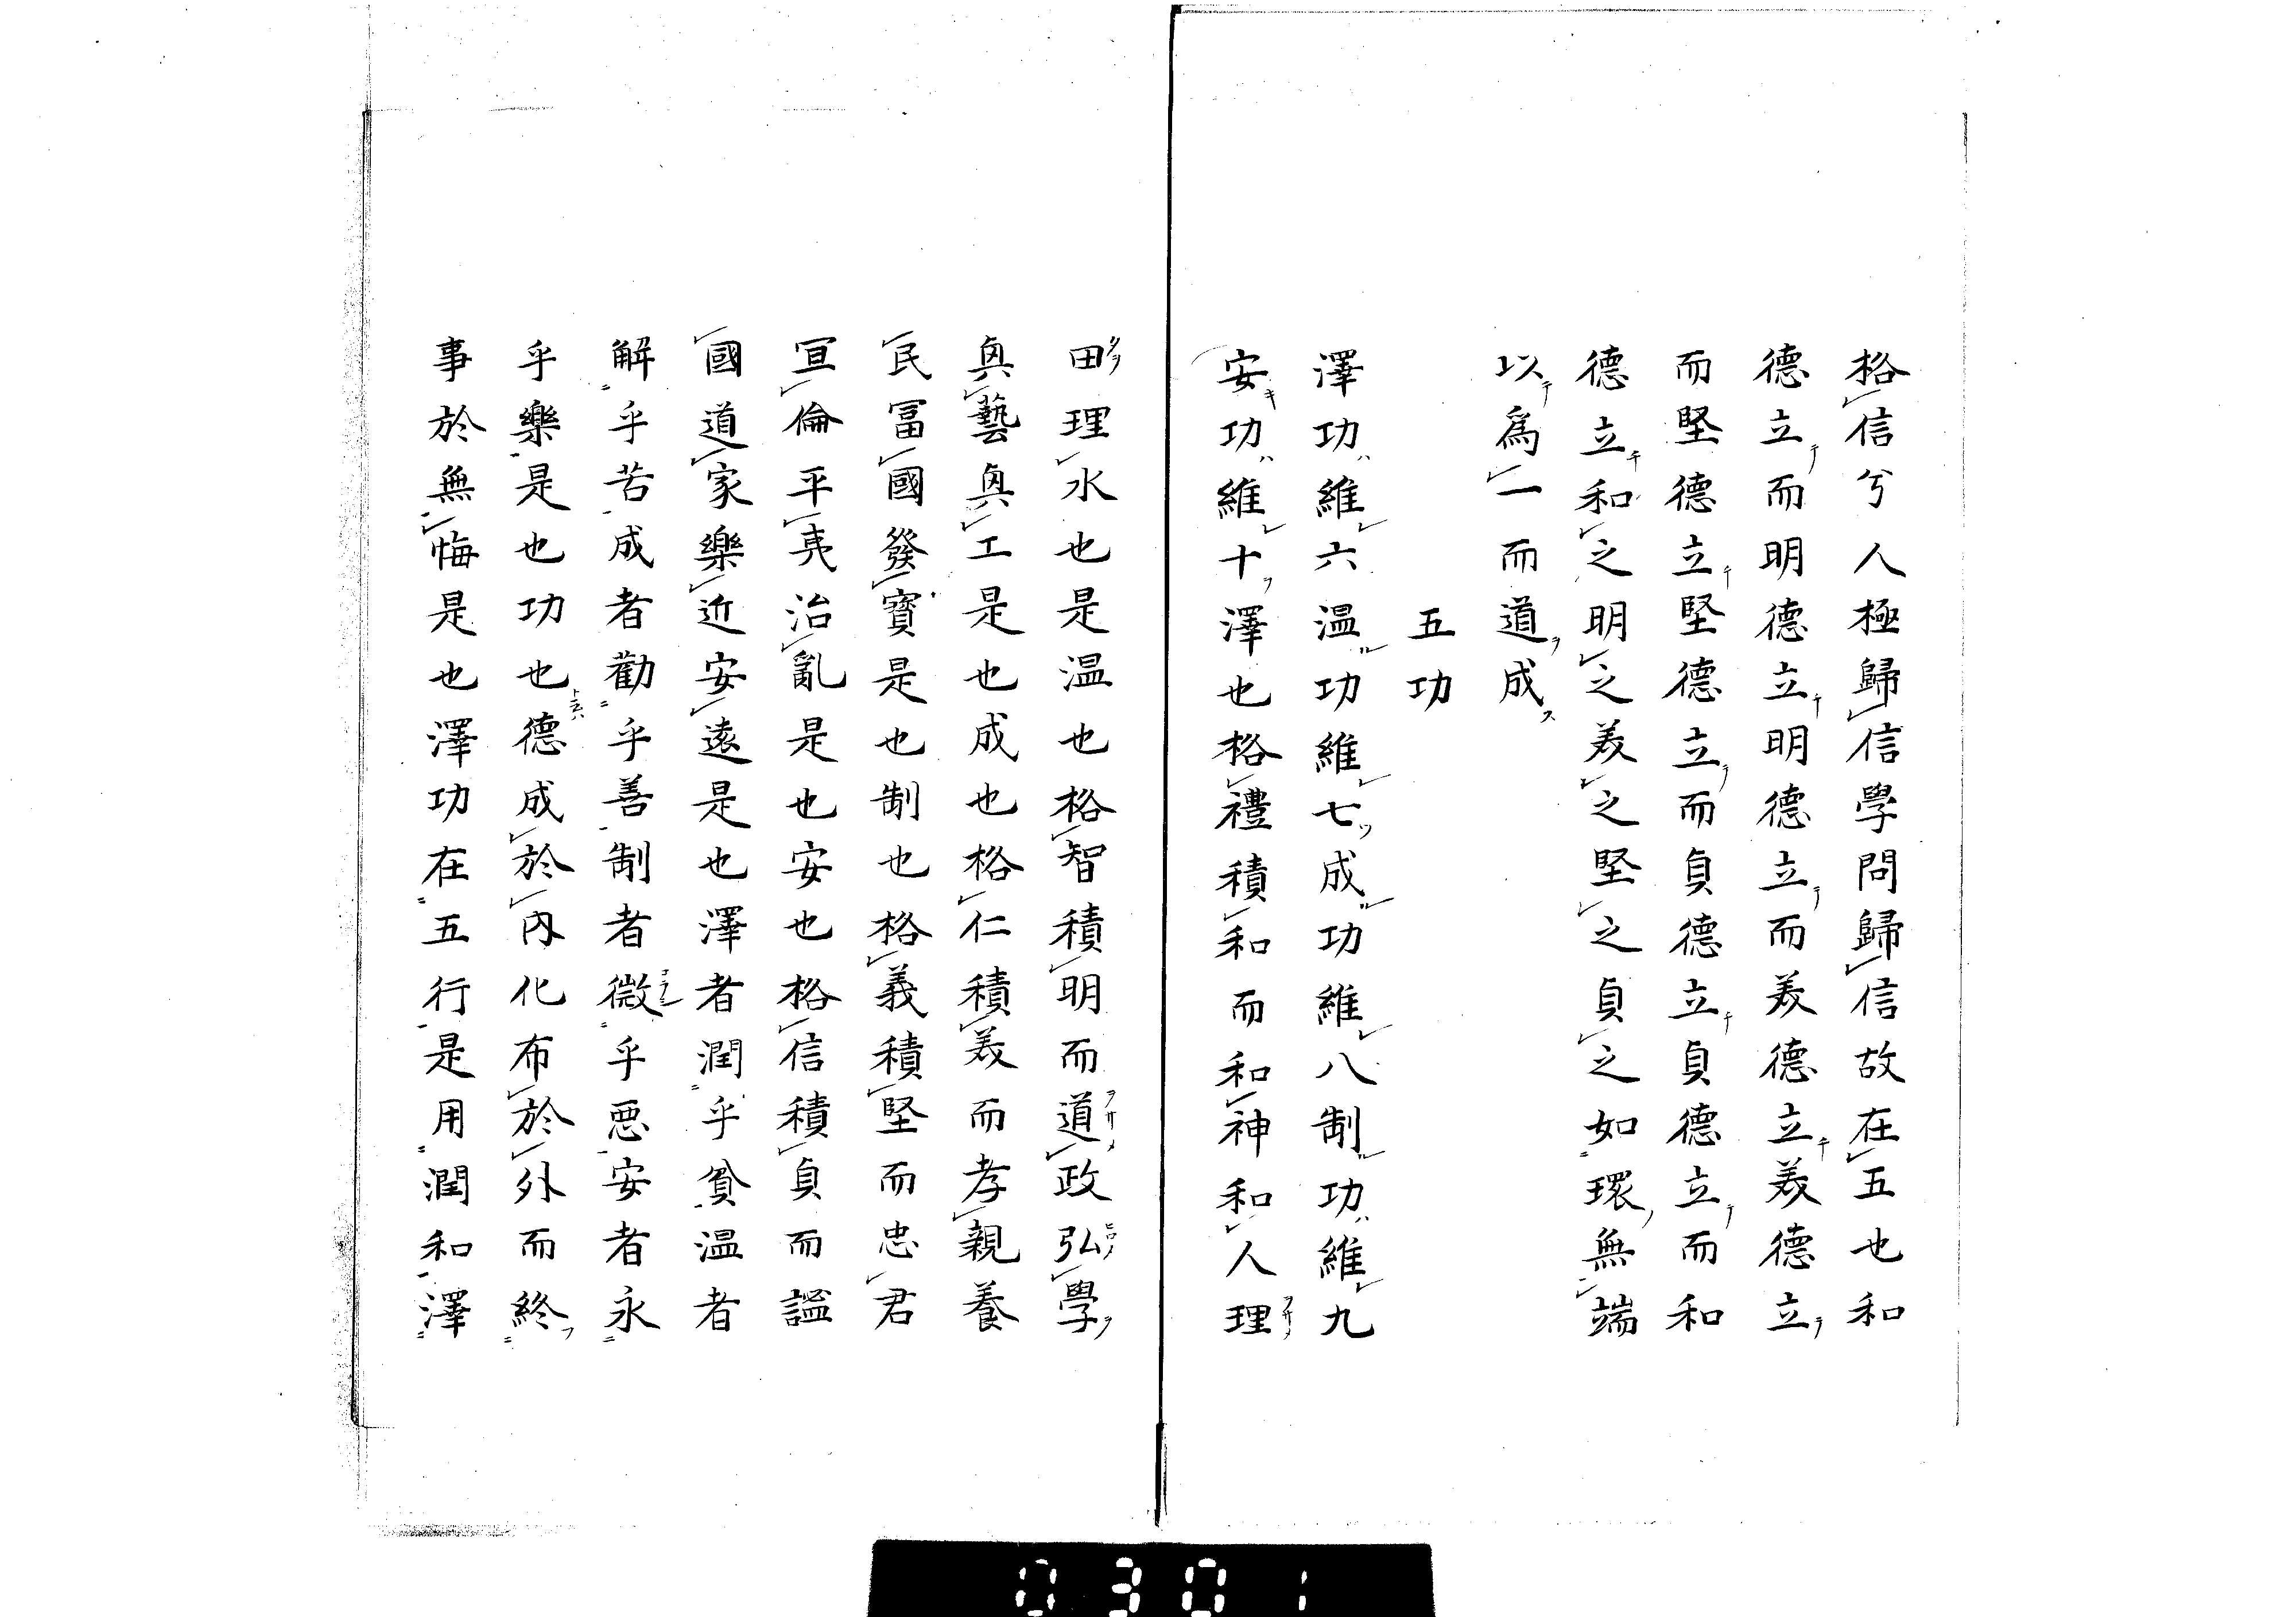 格信兮人極歸信學問歸信故在五也和
德立而明德立明德立而美德立美德立
而堅德立堅德立而貞德立貞德立而和
德立和之明之美之堅之貞之如環無端
以爲一而道成
五功
澤功維六温功維七成功維八制功維九
安功維十澤也格禮積和而和神和人理
田理水也是温也格智積明而道政弘學
奥藝奥工是也成也格仁積美而孝親養
民冨國發寳是也制也格義積堅而忠君
亘倫平夷治亂是也安也格信積貞而謐
國道家樂近安遠是也澤者潤乎貧温者
解乎苦成者勸乎善制者微乎惡安者永
乎樂是也功也德成於内化布於外而終
事於無悔是也澤功在五行是用潤和澤
0301